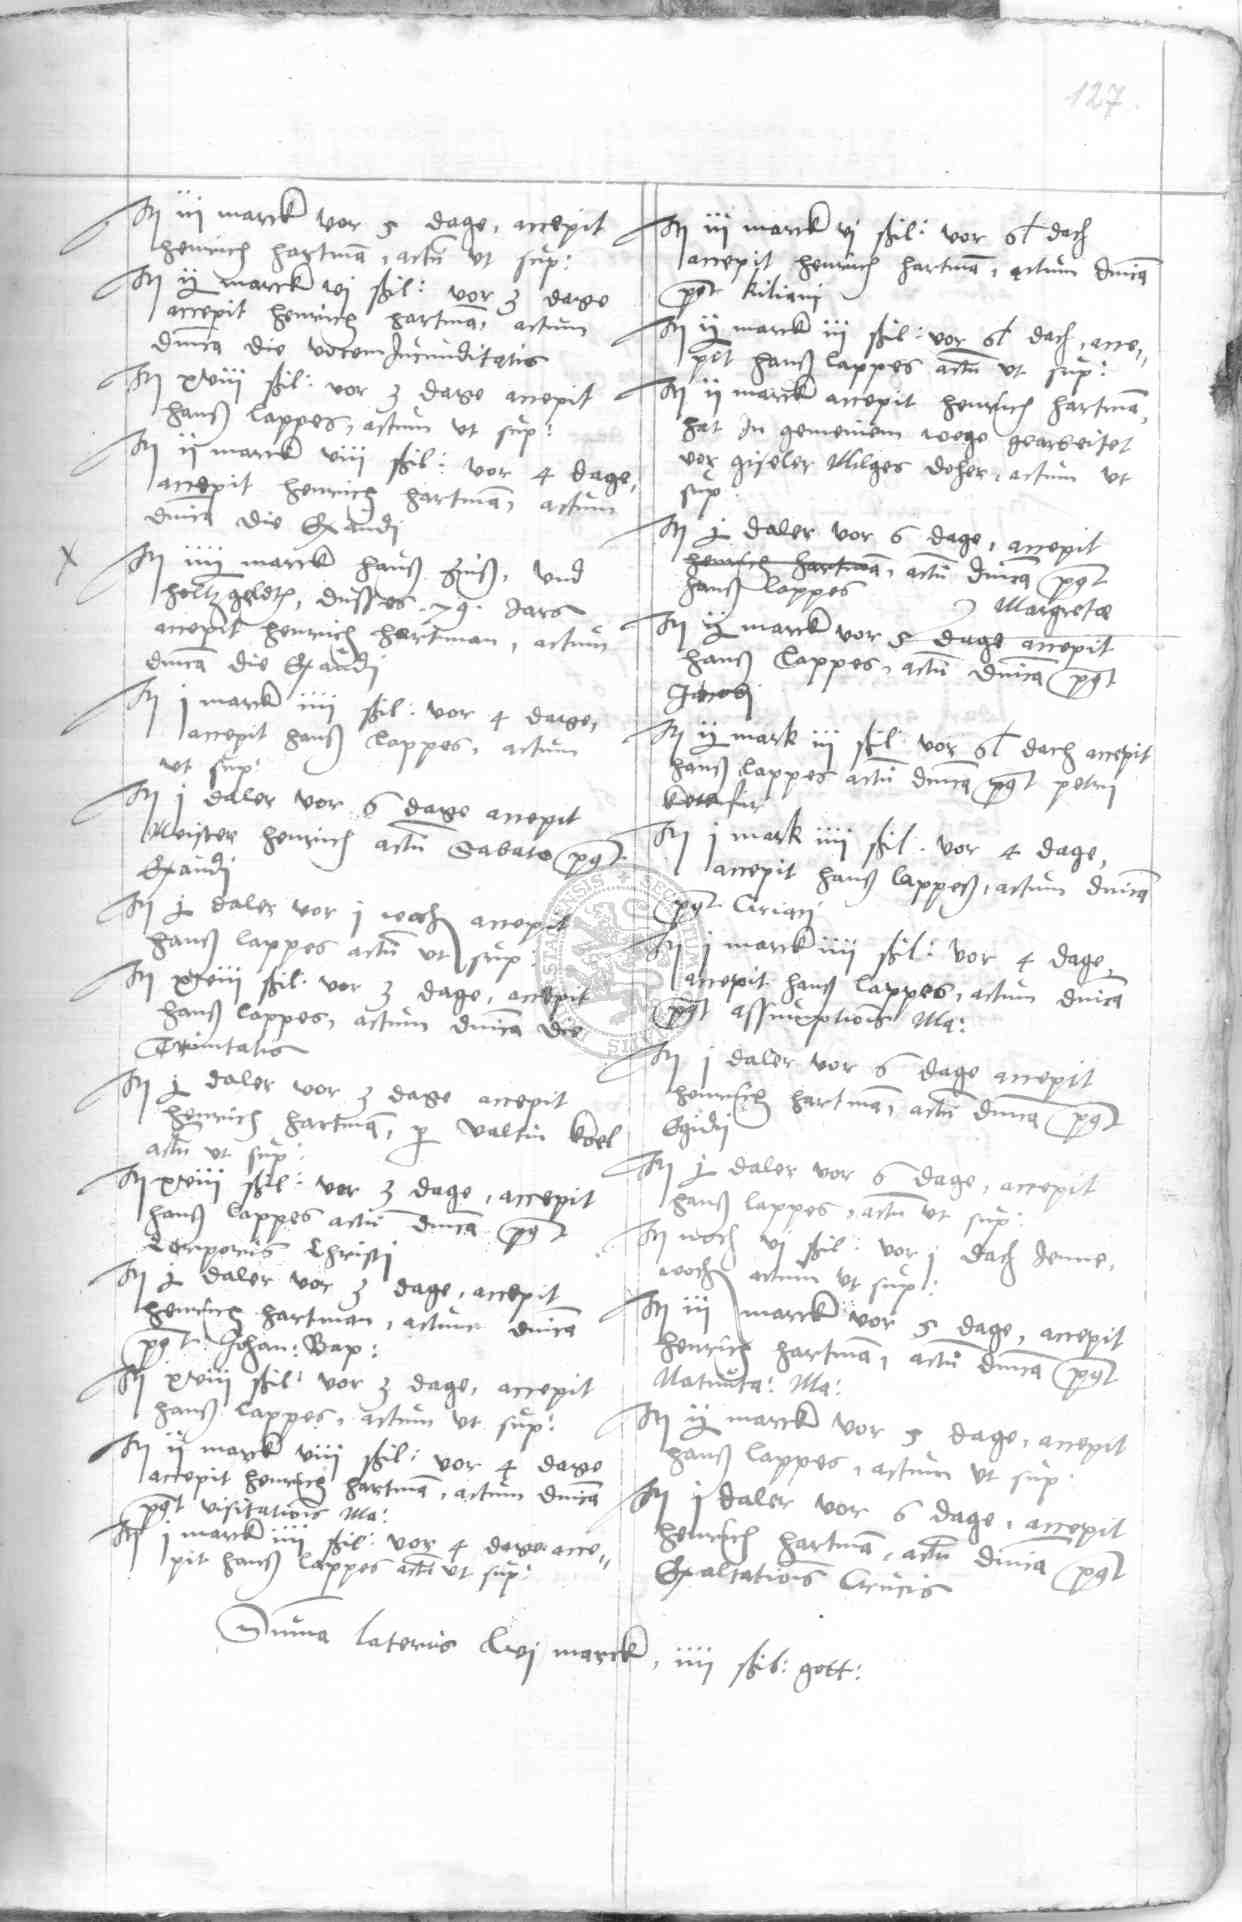 127
It iii marck vor 5 dage, accepit
henrich hartmã, actũ ut sup:
It ij marck vj ßil: vor 3 dage
accepit henrich hartmã, actum
dnica die vocem Jucunditatis
It xviii ßil: vor 3 dage accepit
hanß lappes, actum ut sup:
It ii marck viii ßil: vor 4 dage,
accepit henrich hartmã, actum
dnica die Exaudi
It iiii marck hauß zinß, und
holtzgeldt, dusses 79. Jars
accepit henrich hartman, actum
dnica die Exaudi
It j marck iiii ßil: vor 4 dage,
accepit hanß lappes, actum
ut sup:
It j daler vor 6 dage accepit
Meister henrich actũ Sabato pgt
Exaudi
It j daler vor j woch accepit
hanß lappes actũ ut sup:
It xviii ßil: vor 3 dage, accepit
hanß lappes, actum dnica die
Trinitatis
It j daler vor 3 dage accepit
henrich hartmã, p valtin koel
actũ ut sup:
It xviii ßil: vor 3 dage, accepit
hanß lappes actũ dnica pgt
Corporis Christi
It j daler vor 3 dage, accepit
henrich hartman, actum dnica
pgt Johan: Bap:
It xviii ßil: vor 3 dage, accepit
hanß lappes, actum ut sup:
It ii marck viii ßil: vor 4 dage
accepit henrich hartmã, actum dnica
pgt visitationis Ma:
It j marck iiii ßil: vor 4 dage acce"
pit hanß lappes actũ ut sup:
It iii marck vj ßil: vor 6½ dach
accepit henrich hartmã, actum dnica
pgt kiliani
It ij marck iii ßil: vor 6½ dach, acce"
pit hanß lappes actũ ut sup:
It ii marck accepit henrich hartmã,
hat In gemeinem wege gearbeitet
vor giseler Milges doher, actum ut
sup:
It j daler vor 6 dage, accepit
henrich hartmã, actũ dnica pgt
hanß lappes Margretæ
It ij marck vor 5 dage accepit
hanß lappes, actũ dnica pgt
Jacobi
It ij mark iii ßil vor 6½ dach accepit
hanß lappes actũ dnica pgt petri
It j mark iiii ßil: vor 4 dage,
accepit hanß lappeß, actum dnica
pgt Ciriaci
It j marck iiii ßil: vor 4 dage,
accepit hanß lappes, actum dnica
pgt assumptionis Ma:
It j daler vor 6 dage accepit
henrich hartmã, actũ dnica pgt
Egidij
It j daler vor 6 dage, accepit
hanß lappes, actũ ut sup:
It noch vj ßil: vor j dach Jenne,
woch actum ut sup:
It iii marck vor 5 dage, accepit
henrich hartmã, actũ dnica pgt
Nativita: Ma:
It ij marck vor 5 dage, accepit
hanß lappes, actum ut sup:
It j daler vor 6 dage, accepit
henrich hartmã, actũ dnica pgt
Exaltationis Crucis
Suma lateris lvj marck, iiii ßil: gott: